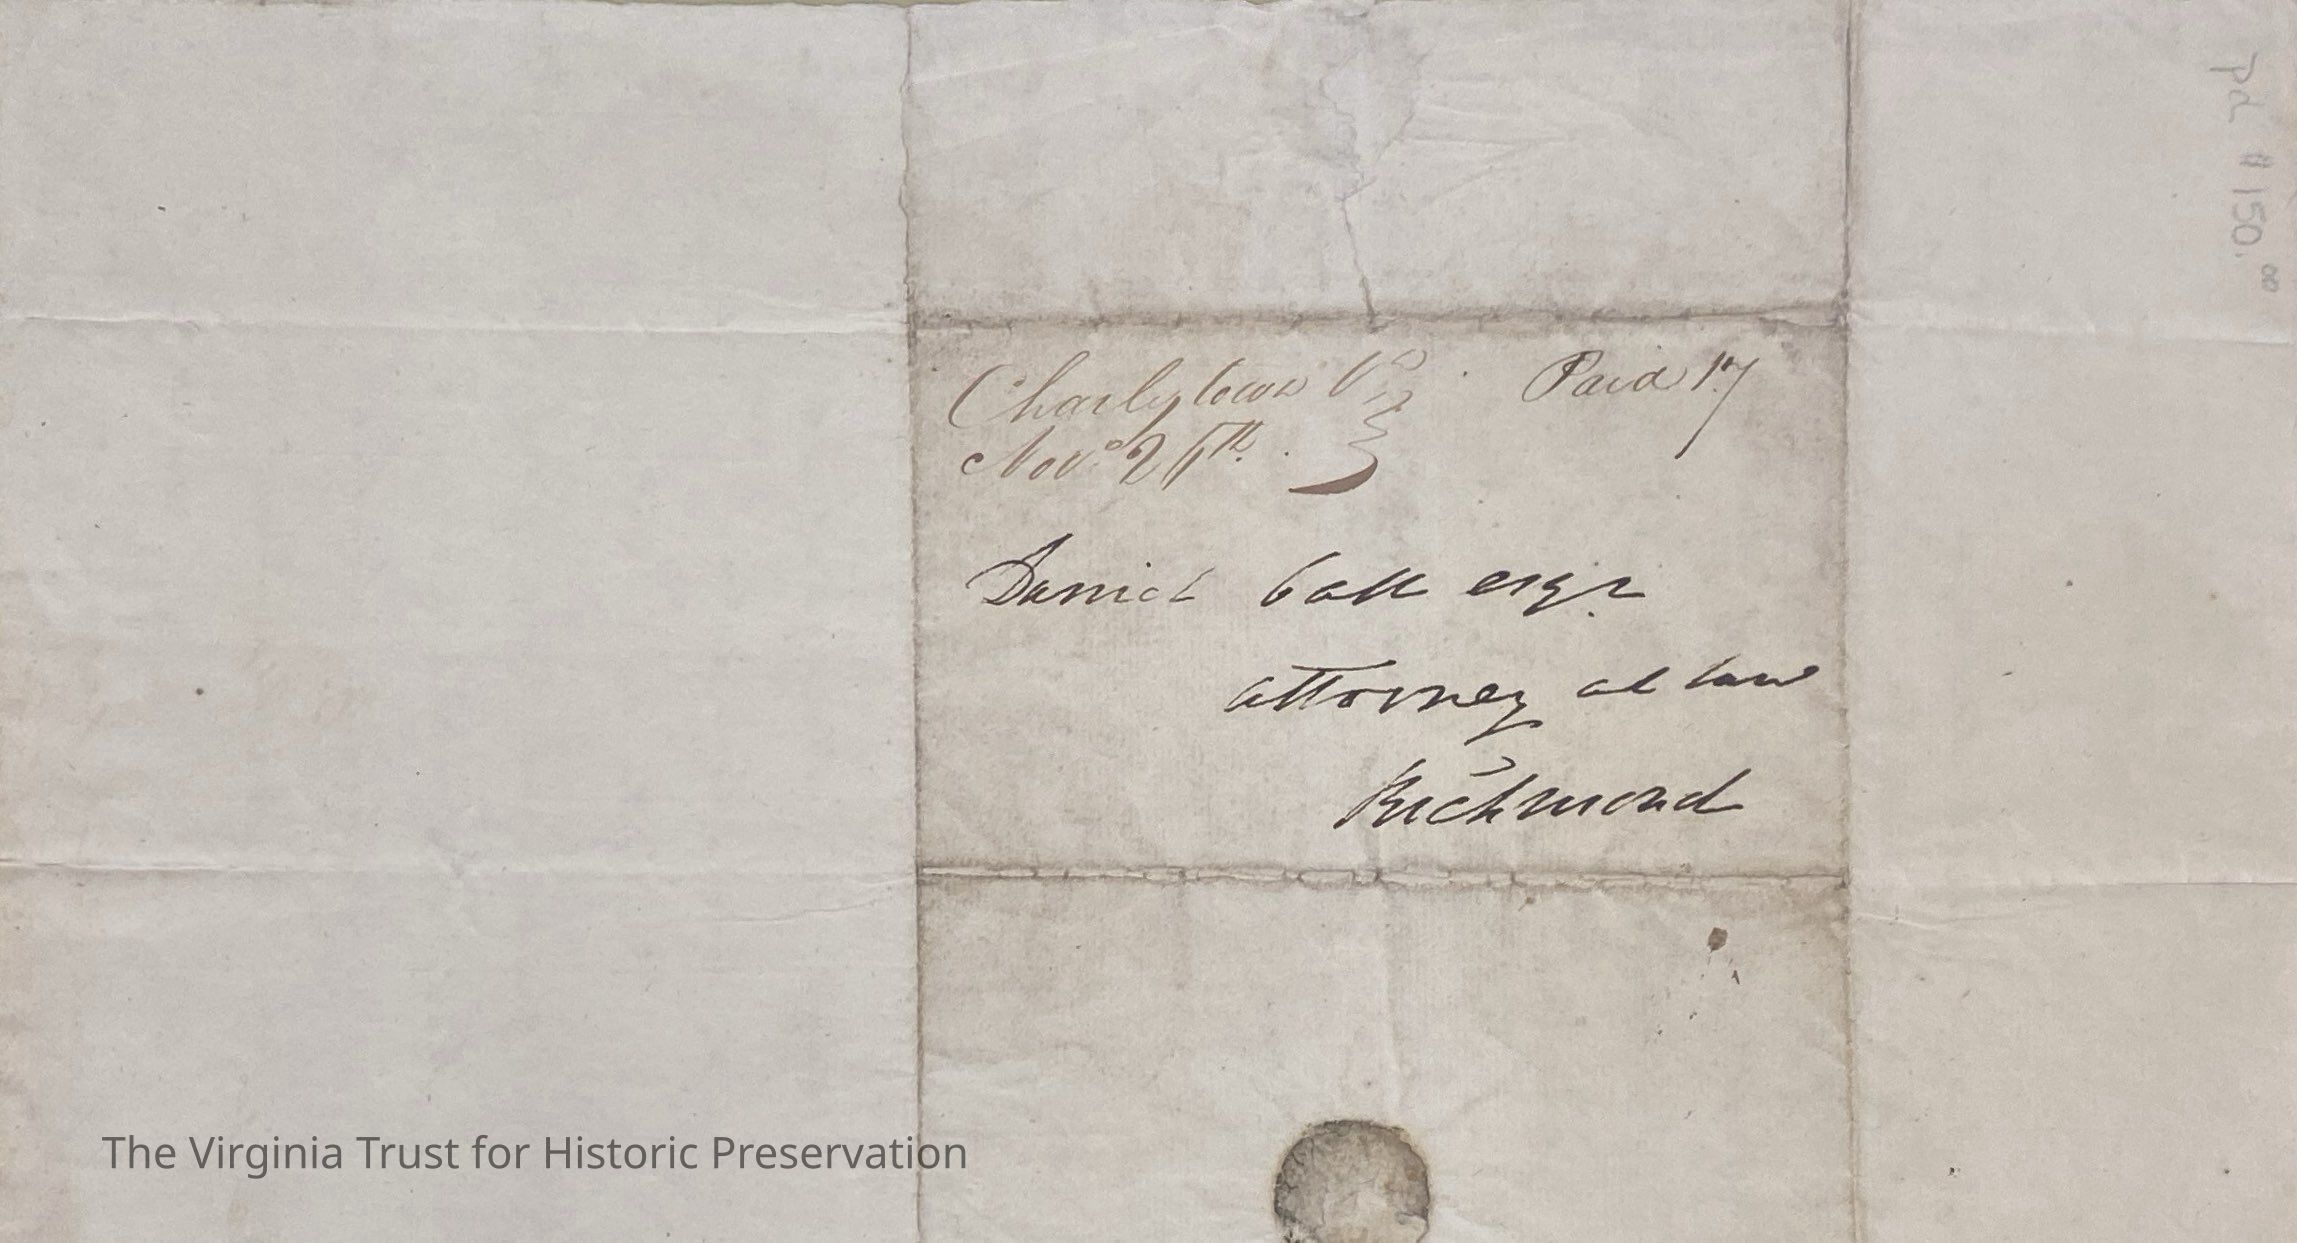 Charlestown Va Paid 17
Nov. 26th.
Daniel Call esqr.
attorney at law
Richmond
pd # 150.00
The Virginia Trust for Historic Preservation